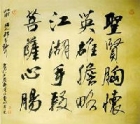 聖賢胸懷
英雄膽略
江湖手段
菩薩心腸